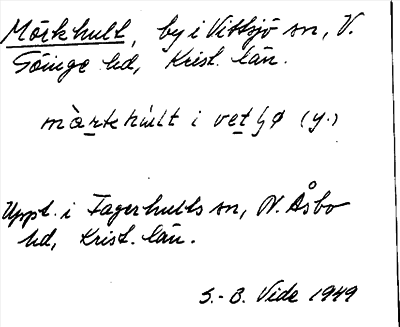 Mörkhult, by i Vittsjö sn, V.
Göinge hd, Krist. län.
màrkhúlt i vetʃø (y.)
Uppt. i Fagerhults sn, N. Åsbo
hd, Krist. län.
S.-B. Vide 1949